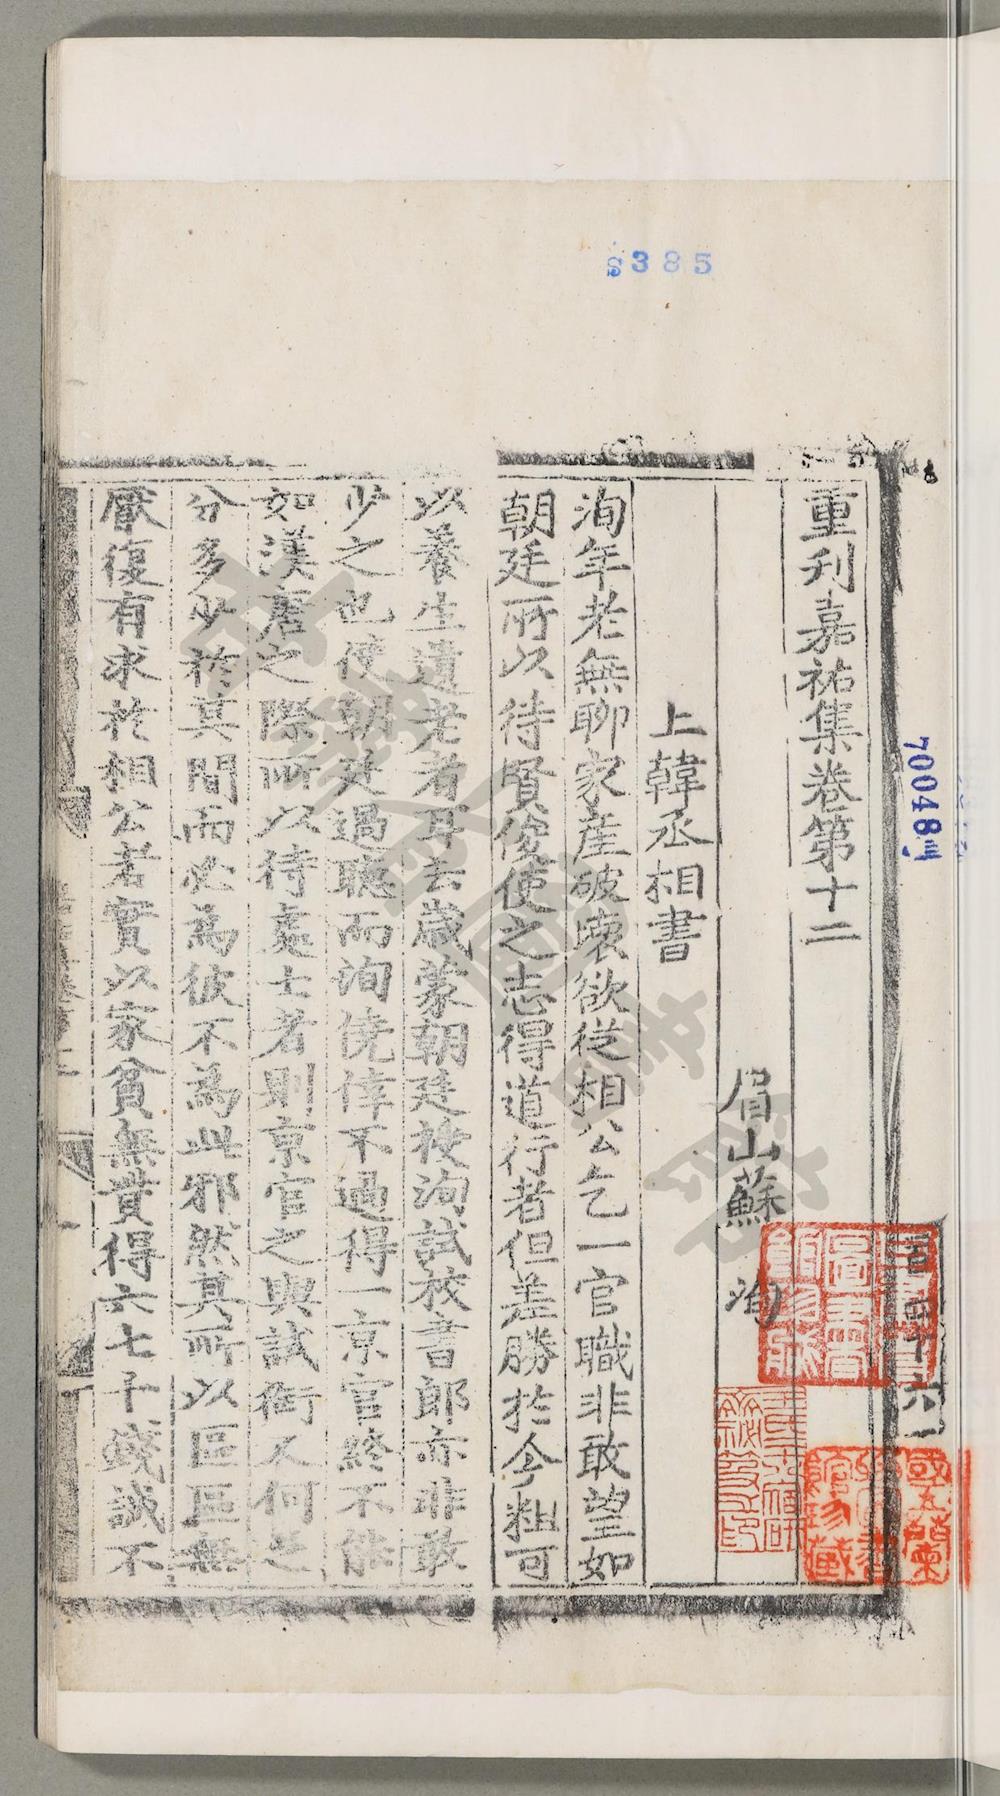 S385
重刋嘉祐集卷第十二
眉山蘇　洵
上韓丞相書
洵年老無聊家産破壊欲從相公乞一官職非敢望如
朝廷所以待賢俊使之志得道行者但差勝於今粗可
以養生遺老者耳去歲蒙朝廷授洵試校書郎亦非敢
少之也使朝廷過聽而洵僥倖不過得一京官終不能
如漢唐之際所以待處士者則京官之與試銜又何足
分多少於其間而必為彼不為此邪然其所以區區無
厭復有求於相公者實以家貧無貲得六七千錢誠不
70048